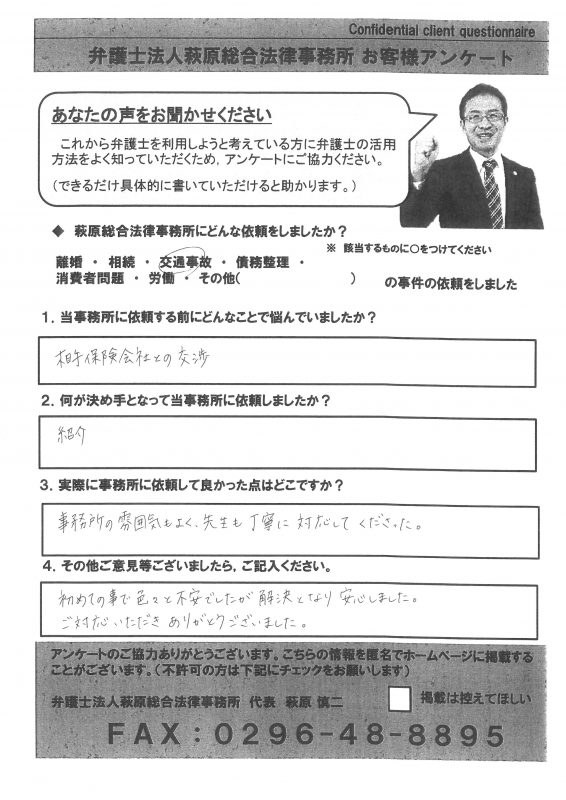 Confidential client questionnaire
弁護士法人萩原総合法律事務所 お客様アンケート
あなたの声をお聞かせください
これから弁護士を利用しようと考えている方に弁護士の活用
方法をよく知っていただくため，アンケートにご協力ください。
（できるだけ具体的に書いていただけると助かります。）
◆ 萩原総合法律事務所にどんな依頼をしましたか？
※ 該当するものに○をつけてください
離婚 ・ 相続 ・ 交通事故 ・ 債務整理 ・
消費者問題 ・ 労働 ・ その他( ) の事件の依頼をしました
１．当事務所に依頼する前にどんなことで悩んでいましたか？
相手保険会社との交渉
２．何が決め手となって当事務所に依頼しましたか？
紹介
３．実際に事務所に依頼して良かった点はどこですか？
事務所の雰囲気もよく、先生も丁寧に対応してくださった。
４．その他ご意見等ございましたら，ご記入ください。
初めての事で色々と不安でしたが解決となり安心しました。
ご対応いただきありがとうございました。
アンケートのご協力ありがとうございます。こちらの情報を匿名でホームページに掲載する
ことがございます。（不許可の方は下記にチェックをお願いします）
弁護士法人萩原総合法律事務所 代表 萩原 慎二
掲載は控えてほしい
ＦＡＸ：０２９６−４８−８８９５